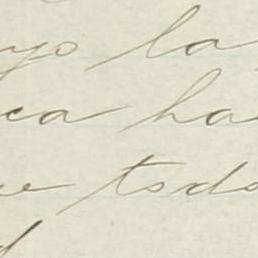 yo la
ca ha
e todo